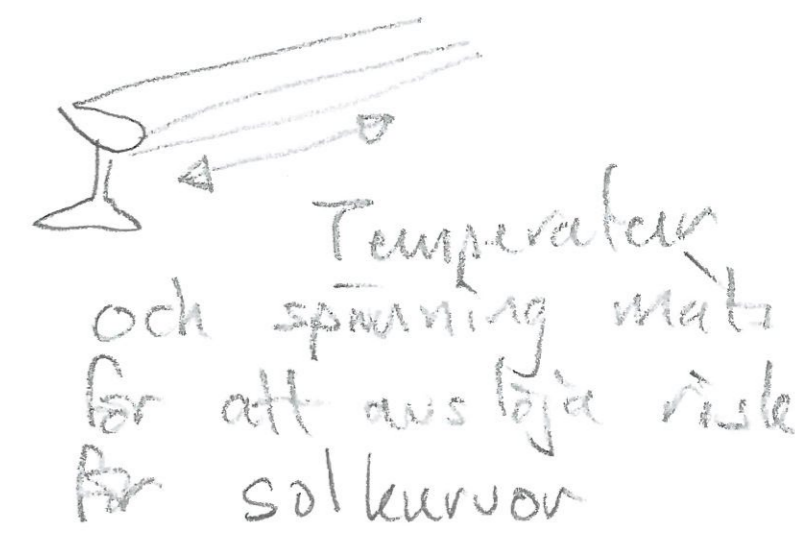 Temperatur
och spänning mäts
för att avslöja risk
för solkurvor